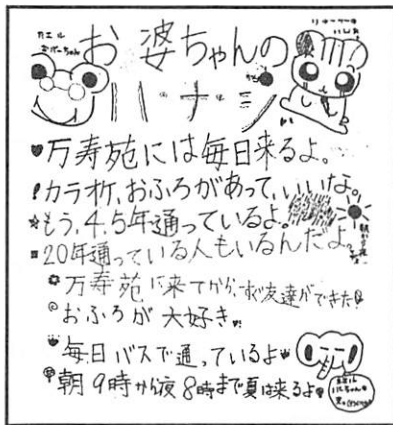 カエル
おばーちゃん
お婆ちゃんの
ハナシ
万寿苑には毎日来るよ。
カラオケ、おふろがあって、いいな。
もう、4、5年通っているよ。
20年通っている人もいるんだよ。
万寿苑に来てから、すぐ友達ができた!
おふろが大好き
毎日バスで通っているよ
朝9時から夜8時まで夏は来るよ